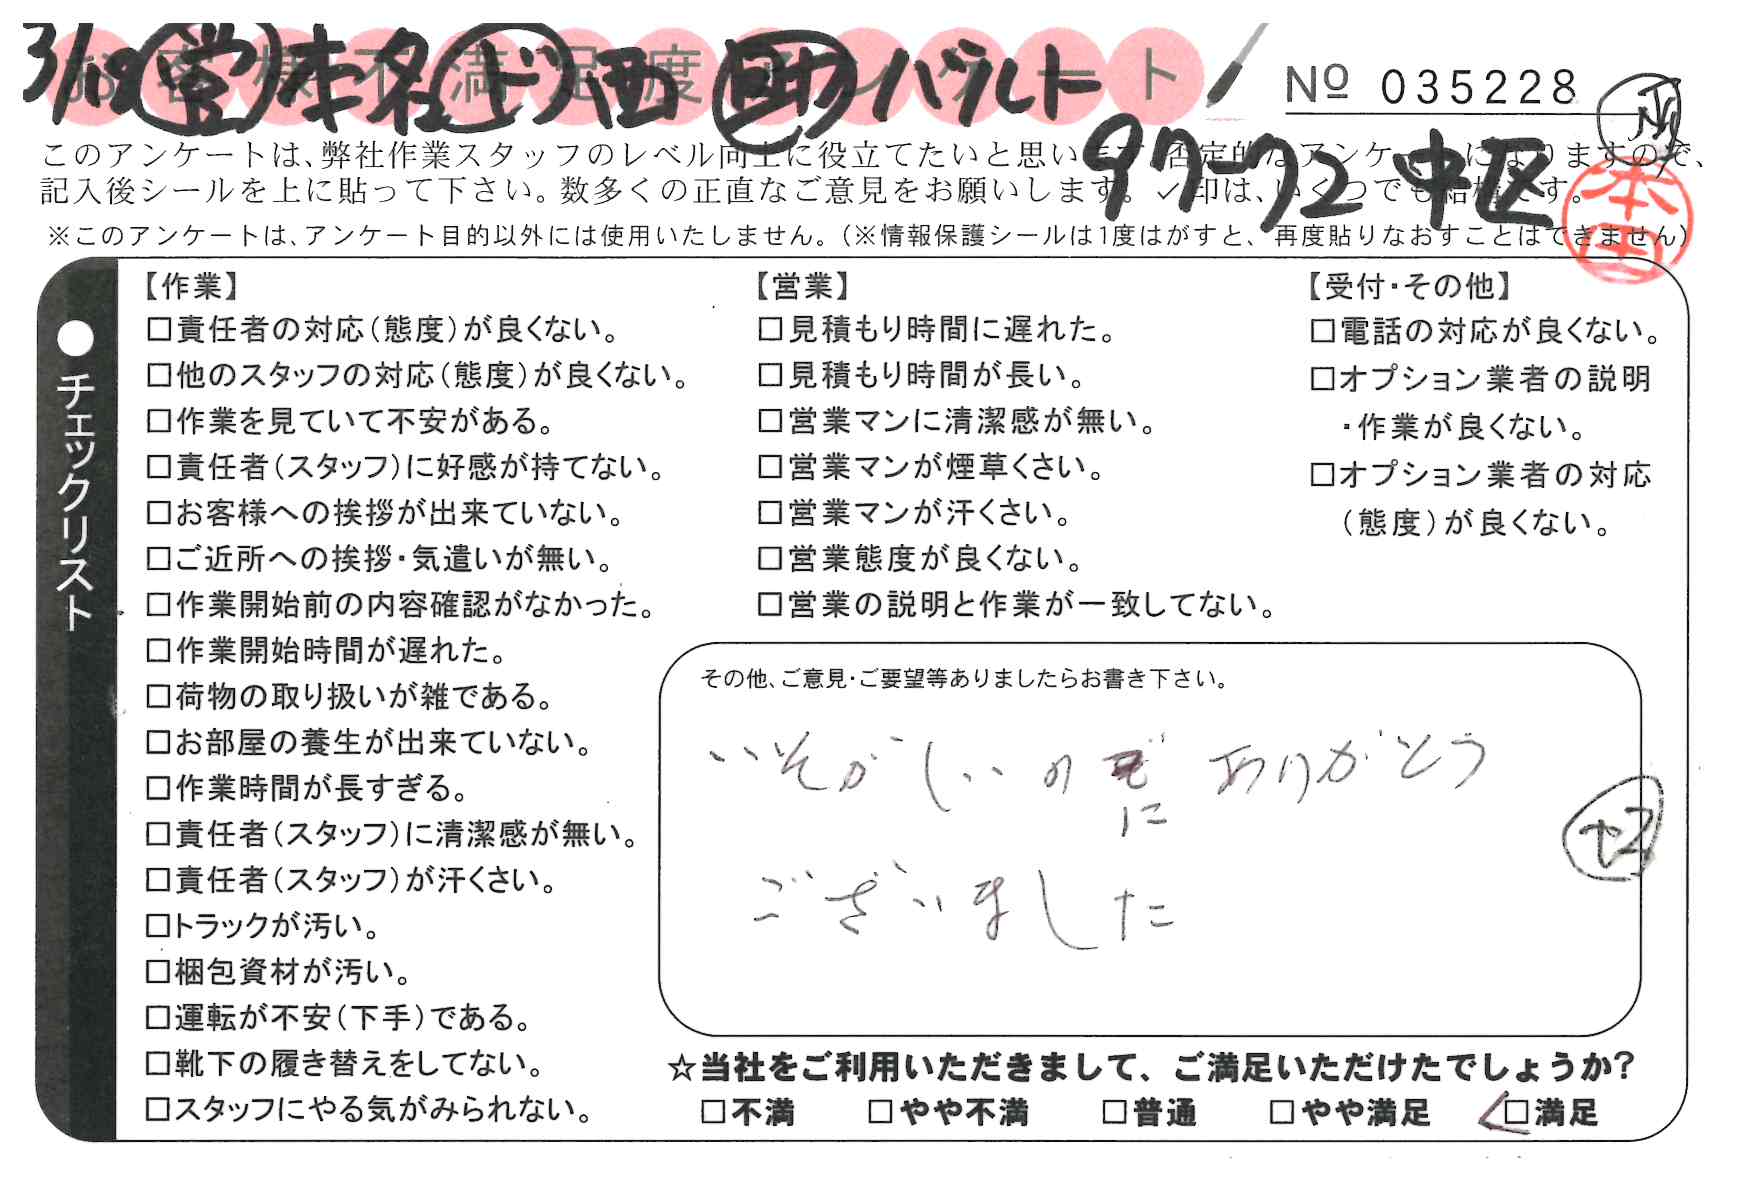 お客様不満足度アンケート
3/19 営 本名 ド 西 サ バルト
№ 035228
97-72 中区
このアンケートは、弊社作業スタッフのレベル向上に役立てたいと思います。否定的なアンケートになりますので、
記入後シールを上に貼って下さい。数多くの正直なご意見をお願いします。✓印は、いくつでも結構です。
※このアンケートは、アンケート目的以外には使用いたしません。（※情報保護シールは1度はがすと、再度貼りなおすことはできません）
●チェックリスト
【作業】
□責任者の対応（態度）が良くない。
□他のスタッフの対応（態度）が良くない。
□作業を見ていて不安がある。
□責任者（スタッフ）に好感が持てない。
□お客様への挨拶が出来ていない。
□ご近所への挨拶・気遣いが無い。
□作業開始前の内容確認がなかった。
□作業開始時間が遅れた。
□荷物の取り扱いが雑である。
□お部屋の養生が出来ていない。
□作業時間が長すぎる。
□責任者（スタッフ）に清潔感が無い。
□責任者（スタッフ）が汗くさい。
□トラックが汚い。
□梱包資材が汚い。
□運転が不安（下手）である。
□靴下の履き替えをしてない。
□スタッフにやる気がみられない。
【営業】
□見積もり時間に遅れた。
□見積もり時間が長い。
□営業マンに清潔感が無い。
□営業マンが煙草くさい。
□営業マンが汗くさい。
□営業態度が良くない。
□営業の説明と作業が一致してない。
【受付・その他】
□電話の対応が良くない。
□オプション業者の説明
・作業が良くない。
□オプション業者の対応
（態度）が良くない。
その他、ご意見・ご要望等ありましたらお書き下さい。
いそがしいのに ありがとう
ございました
☆当社をご利用いただきまして、ご満足いただけたでしょうか？
□不満 □やや不満 □普通 □やや満足 □満足